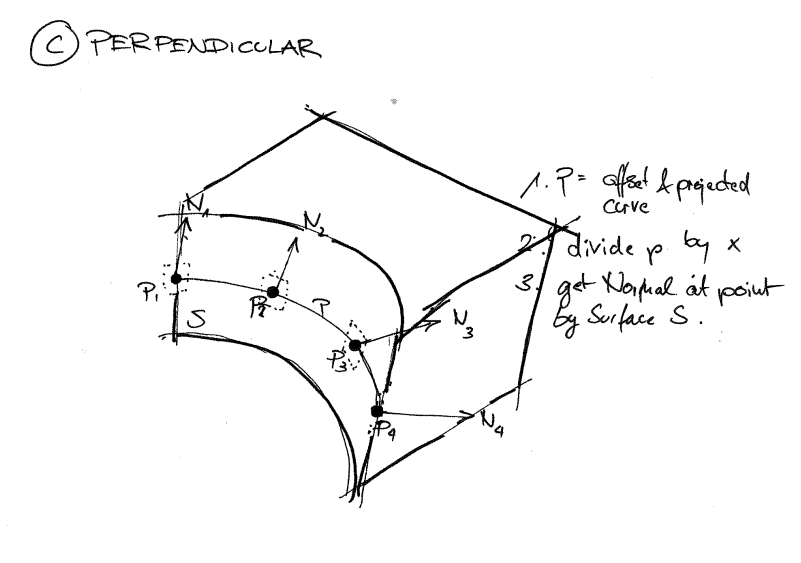 C PERPENDICULAR
1. P = offset & projected
curve
2. divide p by x
3. get Normal at point
by Surface S.
N1
N2
P1
P2
P
S
P3
N3
P4
N4